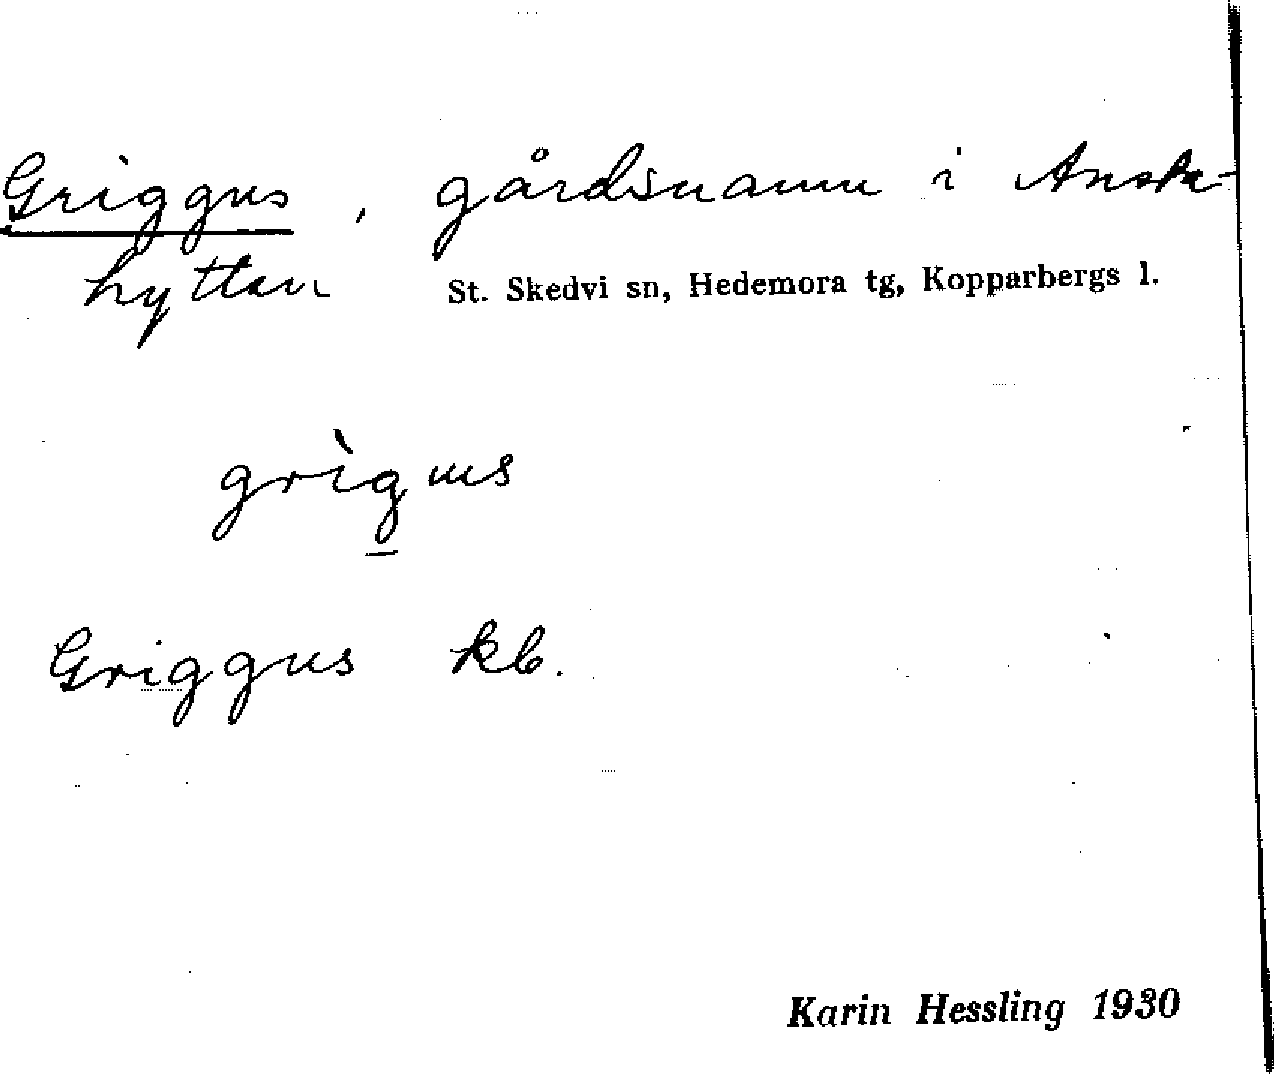 Griggus, gårdsnamn i Anska-
hyttan St. Skedvi sn, Hedemora tg, Kopparbergs l.
grìgus
Griggus kb.
Karin Hessling 1930